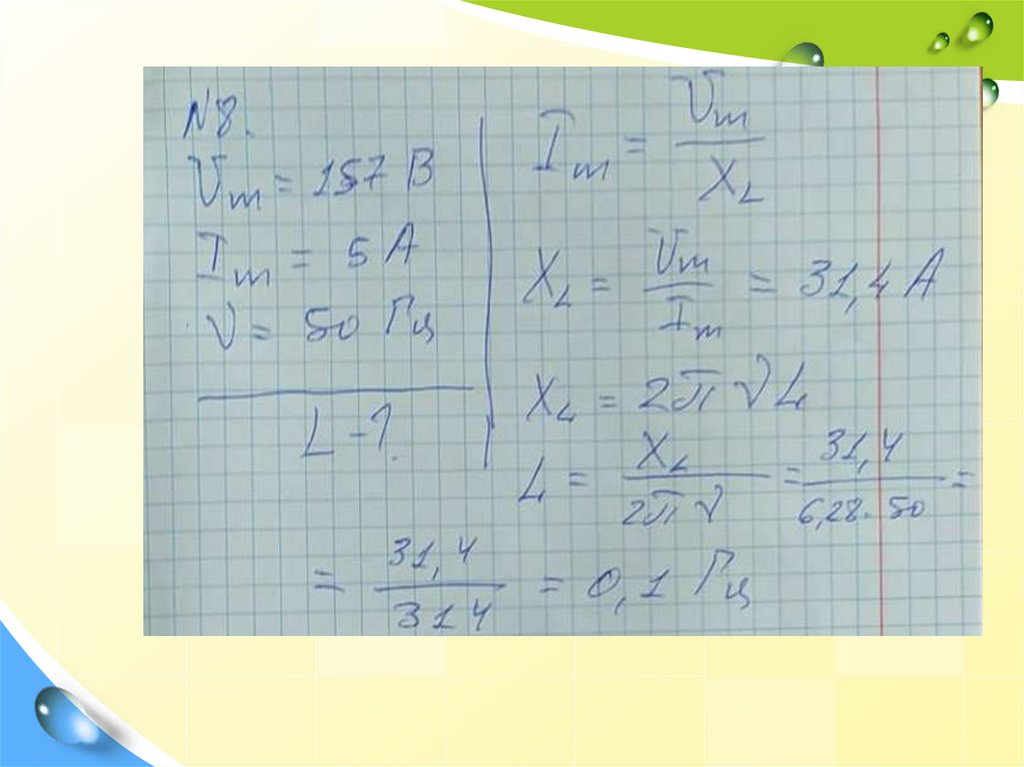 N8.
Um = 157 В
Im = 5 А
ν = 50 Гц
L - ?
Im = Um / XL
XL = Um / Im = 31,4 А
XL = 2π ν L
L = XL / 2π ν = 31,4 / 6,28 · 50 =
= 31,4 / 314 = 0,1 Гц